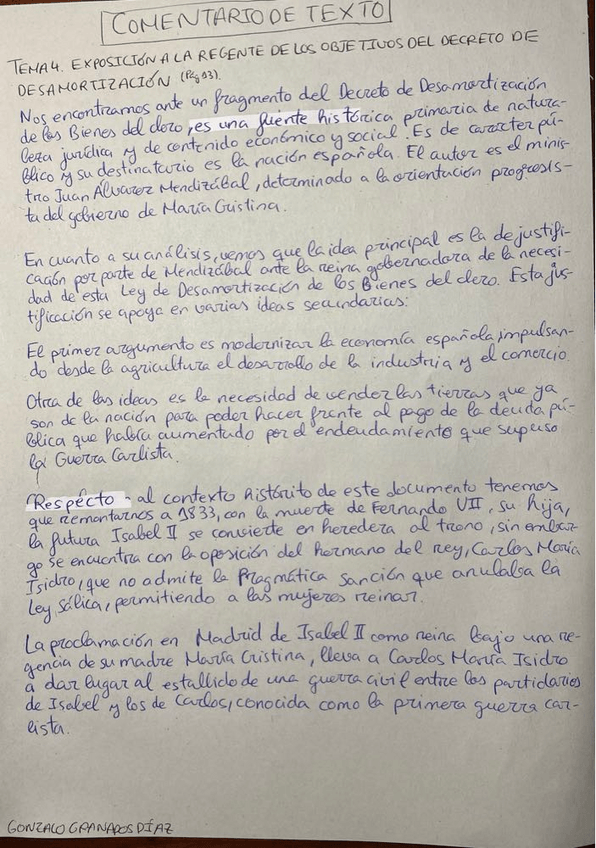 COMENTARIO DE TEXTO
TEMA 4. EXPOSICIÓN A LA REGENTE DE LOS OBJETIVOS DEL DECRETO DE
DESAMORTIZACIÓN (Pg 93).
Nos encontramos ante un fragmento del Decreto de Desamortización
de los Bienes del clero, es una fuente histórica primaria de natura-
leza jurídica y de contenido económico y social. Es de carácter pú-
blico y su destinatario es la nación española. El autor es el minis-
tro Juan Álvarez Mendizábal, determinado a la orientación progresis-
ta del gobierno de María Cristina.
En cuanto a su análisis, vemos que la idea principal es la de justifi-
cación por parte de Mendizábal ante la reina gobernadora de la necesi-
dad de esta Ley de Desamortización de los Bienes del clero. Esta jus-
tificación se apoya en varias ideas secundarias:
El primer argumento es modernizar la economía española, impulsan-
do desde la agricultura el desarrollo de la industria y el comercio
Otra de las ideas es la necesidad de vender las tierras que ya
son de la nación para poder hacer frente al pago de la deuda pú-
blica que había aumentado por el endeudamiento que supuso
la Guerra Carlista.
Respécto al contexto histórito de este documento tenemos
que remontarnos a 1833, con la muerte de Fernando VII, su hija,
la futura Isabel II se convierte en heredera al trono, sin embar
go se encuentra con la oposición del hermano del rey, Carlos María
Isidro, que no admite la Pragmática Sanción que anulaba la
Ley Sálica, permitiendo a las mujeres reinar.
La proclamación en Madrid de Isabel II como reina bajo una re-
gencia de su madre María Cristina, lleva a Carlos María Isidro
a dar lugar al estallido de una guerra civil entre los partidarios
de Isabel y los de Carlos, conocida como la primera guerra car-
lista.
GONZALO GRANADOS DÍAZ